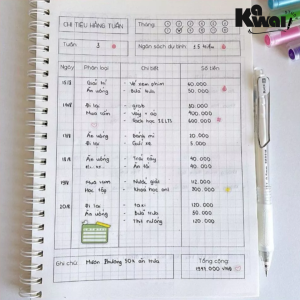 Kawai
CHI TIÊU HÀNG TUẦN
Tháng:
Tuần
3
Ngân sách dự tính
1.5 triệu
Ngày
Phân loại
Chi tiết
Số tiền
Giải trí - Vé xem phim 60.000
Ăn uống - Bữa trưa 50.000
Đi lại - grab 30.000
Mua sắm - Váy + áo 400.000
- Sách học IELTS 600.000
Ăn uống - Bánh mì 20.000
Đi lại - Gửi xe 5.000
Ăn uống - Trái cây 40.000
- Ăn tối 40.000
Học tập - Khoá học onl 300.000
20/8 Đi lại - taxi 120.000
Ăn uống - Bữa trưa 50.000
- Thịt nướng 120.000
Ghi chú: Mượn Phương 50k ăn trưa
Tổng cộng